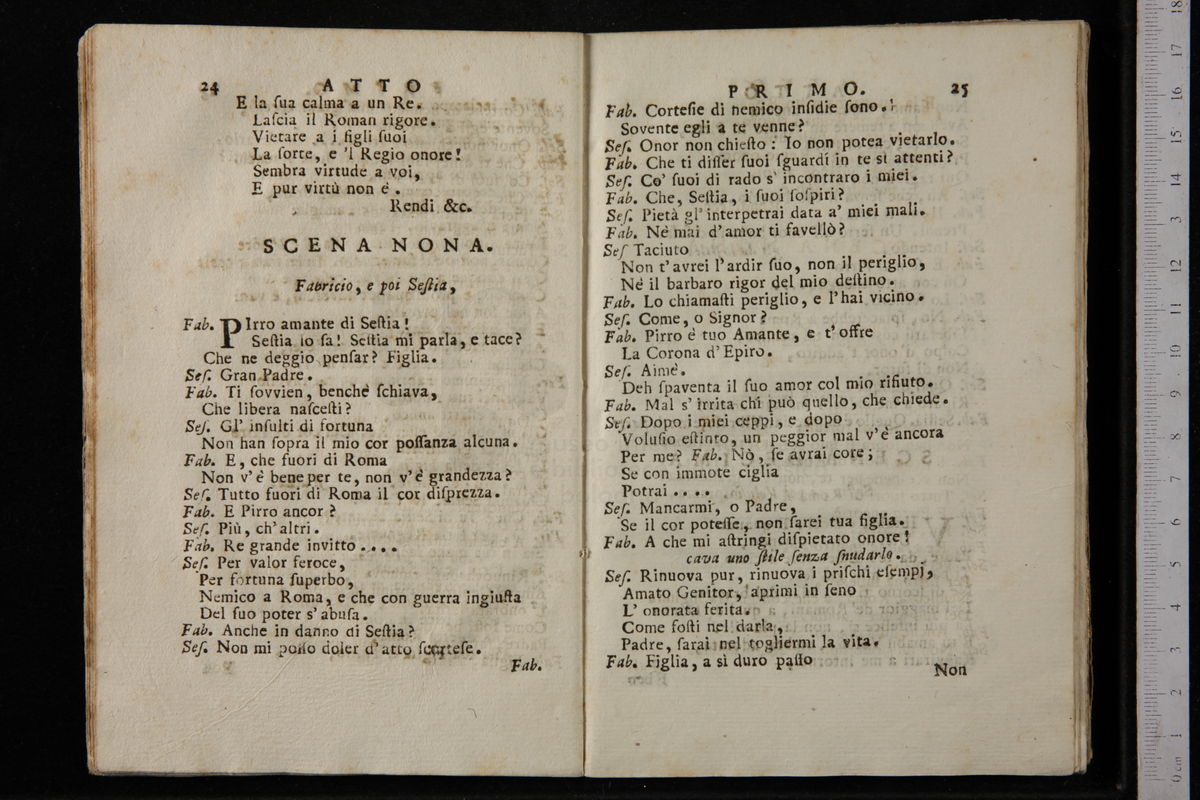 24 ATTO
E la ſua calma a un Re.
Laſcia il Roman rigore.
Vietare a i figli ſuoi
La ſorte, e 'l Regio onore!
Sembra virtude a voi,
E pur virtù non è.
Rendi &c.
SCENA NONA.
Fabricio, e poi Seſtia,
Fab. PIrro amante di Seſtia!
Seſtia lo ſa! Seſtia mi parla, e tace?
Che ne deggio penſar? Figlia.
Seſ. Gran Padre.
Fab. Ti ſovvien, benchè ſchiava,
Che libera naſceſti?
Seſ. Gl' inſulti di fortuna
Non han ſopra il mio cor poſſanza alcuna.
Fab. E, che fuori di Roma
Non v'è bene per te, non v'è grandezza?
Seſ. Tutto fuori di Roma il cor diſprezza.
Fab. E Pirro ancor?
Seſ. Più, ch'altri.
Fab. Re grande invitto....
Seſ. Per valor feroce,
Per fortuna ſuperbo,
Nemico a Roma, e che con guerra ingiuſta
Del ſuo poter s'abuſa.
Fab. Anche in danno di Seſtia?
Seſ. Non mi poſſo doler d'atto ſcorteſe.
Fab.
PRIMO. 25
Fab. Corteſie di nemico inſidie ſono.
Sovente egli a te venne?
Seſ. Onor non chieſto: Io non potea vietarlo.
Fab. Che ti diſſer ſuoi ſguardi in te sì attenti?
Seſ. Co' ſuoi di rado s' incontraro i miei.
Fab. Che, Seſtia, i ſuoi ſoſpiri?
Seſ. Pietà gl' interpetrai data a' miei mali.
Fab. Nè mai d'amor ti favellò?
Seſ Taciuto
Non t'avrei l'ardir ſuo, non il periglio,
Nè il barbaro rigor del mio deſtino.
Fab. Lo chiamaſti periglio, e l'hai vicino.
Seſ. Come, o Signor?
Fab. Pirro è tuo Amante, e t'offre
La Corona d'Epiro.
Seſ. Aimè.
Deh ſpaventa il ſuo amor col mio rifiuto.
Fab. Mal s' irrita chi può quello, che chiede.
Seſ. Dopo i miei ceppi, e dopo
Voluſio eſtinto, un peggior mal v'è ancora
Per me? Fab. Nò, ſe avrai core;
Se con immote ciglia
Potrai....
Seſ. Mancarmi, o Padre,
Se il cor poteſſe, non ſarei tua figlia.
Fab. A che mi aſtringi diſpietato onore!
cava uno ſtile ſenza ſnudarlo.
Seſ. Rinuova pur, rinuova i priſchi eſempj,
Amato Genitor, aprimi in ſeno
L' onorata ferita.
Come foſti nel darla,
Padre, ſarai nel togliermi la vita.
Fab. Figlia, a sì duro paſſo
Non